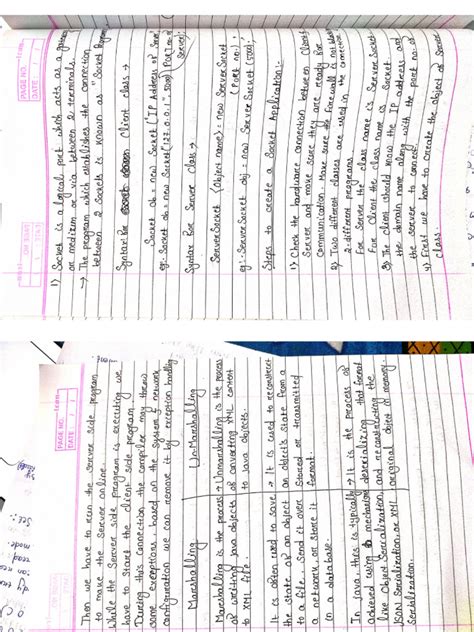 PAGE NO.
DATE / /
1) Socket is a logical port which acts as a gateway
or medium or via between 2 terminals.
→ The program which establishes the connection
between 2 sockets is known as "Socket Program
Syntax for Client class →
Socket obj = new Socket (IP address of Server
eg:- Socket obj = new Socket ("127.0.0.1", 5000)
Syntax for Server class →
ServerSocket (Object name) = new ServerSocket
(Port no.);
eg:- ServerSocket obj = new ServerSocket (5000);
Steps to create a Socket Application:-
1) Check the hardware connection between Client
Server and make sure they are ready for
Communication. Make sure the firewall is not
2) Two different classes are used in the connection
2 different programs.
For Server the class name is ServerSocket
For Client the class name is Socket
3) The client should know the IP address and
the domain name along with the port no. of
the server to connect.
4) First we have to create the object of Server
class.
PAGE NO.
DATE / /
Then we have to run the server side program
to make the server online.
While the Server side program is executing we
have to start the client side program
During this connection the compiler may throw
some exceptions based on the system & network
configuration we can remove it by exception handling
Marshalling Unmarshalling
Marshalling is the process → Unmarshalling is the process
of writing Java objects of converting XML content
to XML file. to Java objects.
It is often used to save → It is used to reconstruct
the state of an object an object's state from a
to a file, send it over stored or transmitted
a network, or store it format.
in a database.
In Java, this is typically → It is the process of
achieved using mechanism deserializing that format
like Object Serialization, and reconstructing the
JSON Serialization or XML original object in memory.
Serialization.